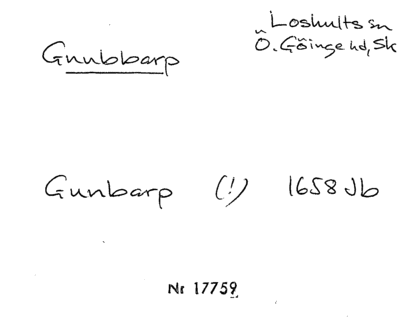 Gnubbarp
Loshults sn
Ö. Göinge hd, Sk
Gunbarp (!) 1658 Jb
Nr 17759